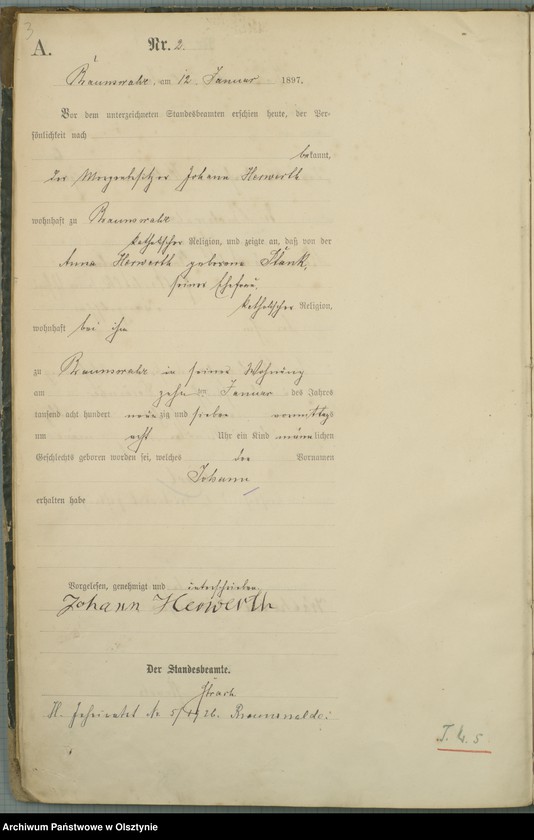 3
A.
Nr. 2.
Braunswalde, am 12 Januar 1897.
Vor dem unterzeichneten Standesbeamten erschien heute, der Per-
sönlichkeit nach
bekannt,
der Johann Herwerth
wohnhaft zu Braunswalde
katholischer Religion, und zeigte an, daß von der
Anna Herwerth geborene Plank,
seiner Ehefrau,
katholischer Religion,
wohnhaft bei ihm
zu Braunswalde in seiner Wohnung
am zehn ten Januar des Jahres
tausend acht hundert neun zig und sieben vormittags
um acht Uhr ein Kind männlichen
Geschlechts geboren worden sei, welches den Vornamen
Johann
erhalten habe
Vorgelesen, genehmigt und unterschrieben
Johann Herwerth
Der Standesbeamte.
Geheiratet Nr 5/1926. Braunswalde.
Archiwum Państwowe w Olsztynie